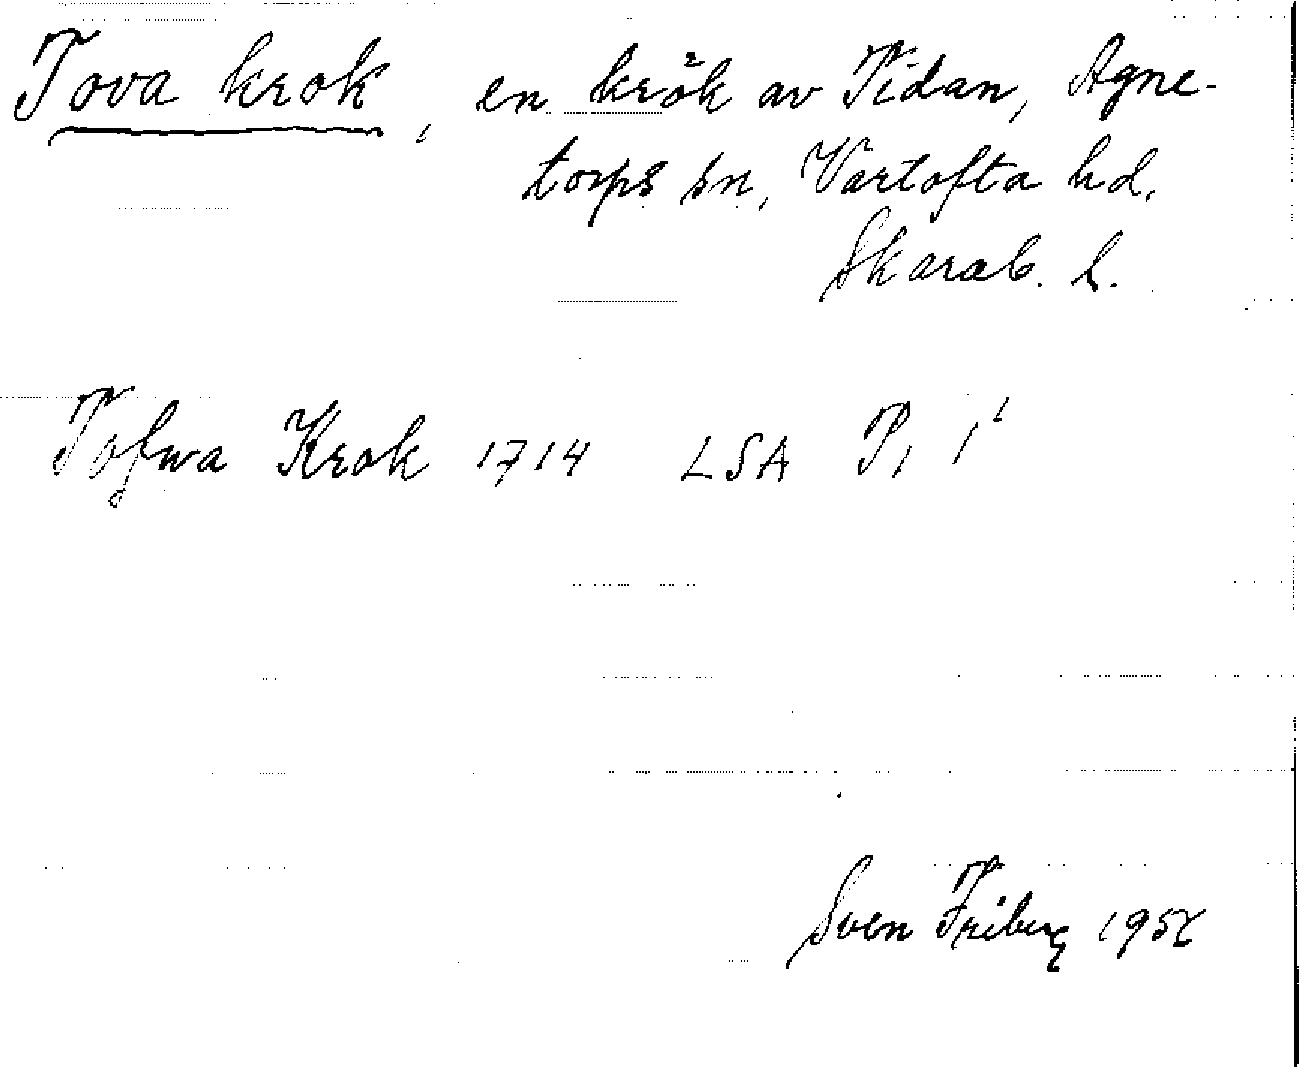 Tova krok, en krök av Tidan, Agne-
torps sn, Vartofta hd.
Skarab. l.
Tofwa Krok 1714 LSA P, 1¹
Sven Friberg